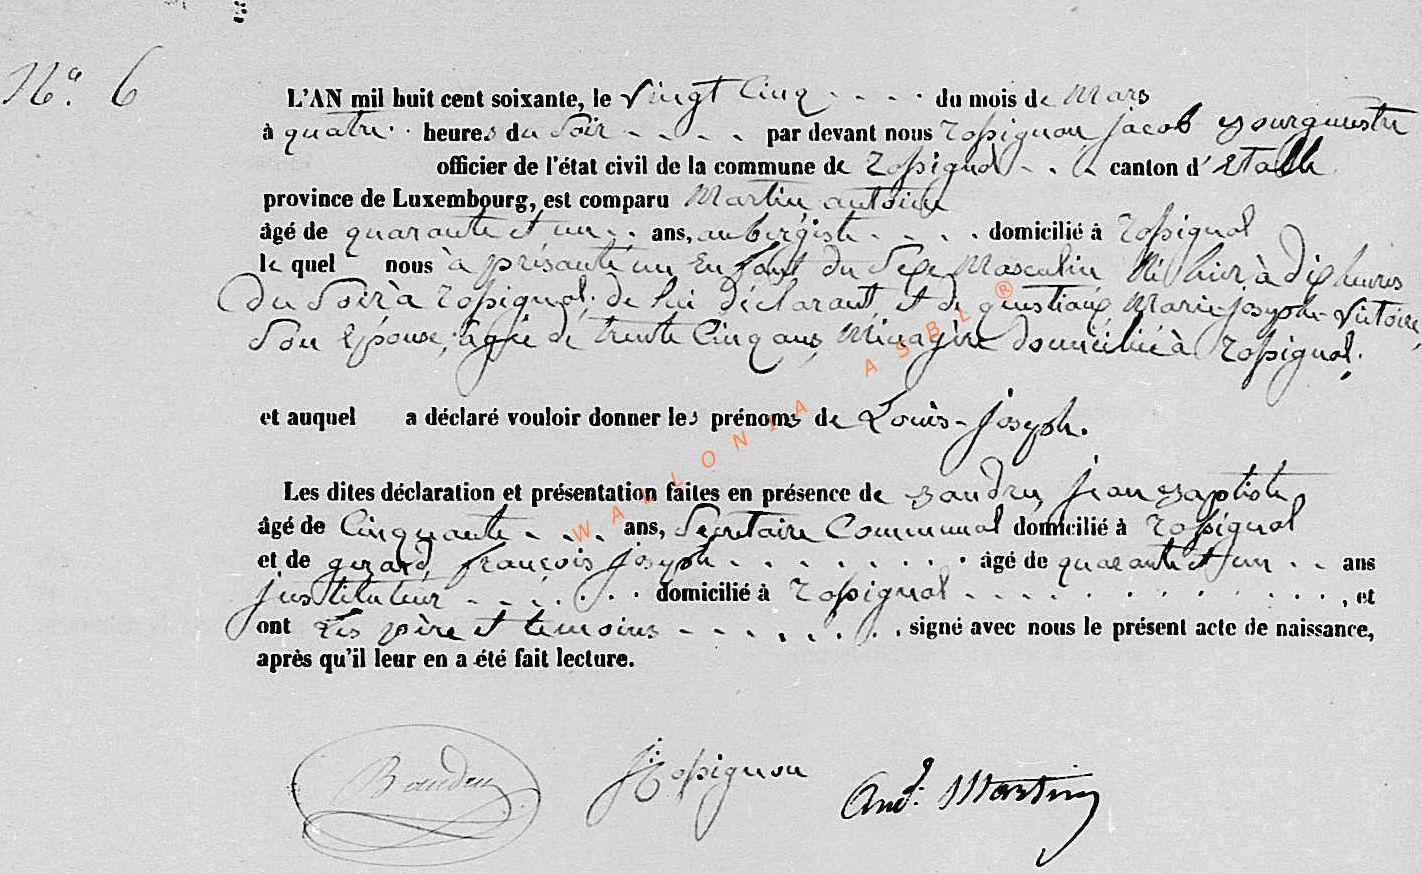 N°. 6
L'AN mil huit cent soixante, le vingt cinq . . . . du mois de Mars
à quatre . . heures du soir . . . . par devant nous Rossignon jacob Bourgmestre
officier de l'état civil de la commune de Rossignol . . . canton d' Etalle
province de Luxembourg, est comparu Martin, antoine
âgé de quarante et un . . ans, aubergiste . . . . domicilié à Rossignol
lequel nous à présenté un Enfant du Sexe Masculin Né hier, à dix heures
du Soir à Rossignol, de lui déclarant, et de Marie josephe Victoire,
Son Epouse, agée de trente Cinq ans, Ménagère domiciliée à Rossignol;
et auquel a déclaré vouloir donner les prénoms de Louis-joseph.
Les dites déclaration et présentation faites en présence de Baudru, jean Baptiste,
âgé de Cinquante . . . ans, Secretaire Communal domicilié à Rossignol
et de gerard, françois joseph . . . . . . . . âgé de quarante et un . . ans
instituteur . . . . . . . domicilié à Rossignol . . . . . . . . . . . . , et
ont Les père et temoins . . . . . . . . signé avec nous le présent acte de naissance,
après qu'il leur en a été fait lecture.
Baudru J Rossignon Ant. Martin
WALLONIA ASBL ®